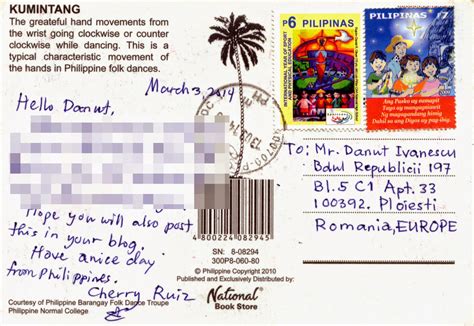 KUMINTANG
The greateful hand movements from
the wrist going clockwise or counter
clockwise while dancing. This is a
typical characteristic movement of
the hands in Philippine folk dances.
March 3, 2014
Hello Danut,
Hope you will also post
this in your blog.
Have a nice day
from Philippines.
Cherry Ruiz
Courtesy of Philippine Barangay Folk Dance Troupe
Philippine Normal College
4 800224 082945
SN: 8-08294
300P8-060-80
© Philippine Copyright 2010
Published and Exclusively Distributed by:
National
Book Store
P6 PILIPINAS
INTERNATIONAL YEAR OF SPORT
AND PHYSICAL EDUCATION
PILIPINAS P7
Ang Pasko ay sumapit
Tayo ay mangagsiawit
Ng magagandang himig
Dahil sa ang Diyos ay pag-ibig.
To: Mr. Danut Ivanescu
Bdul Republicii 197
Bl. 5 C1 Apt. 33
100392. Ploiesti
Romania, EUROPE